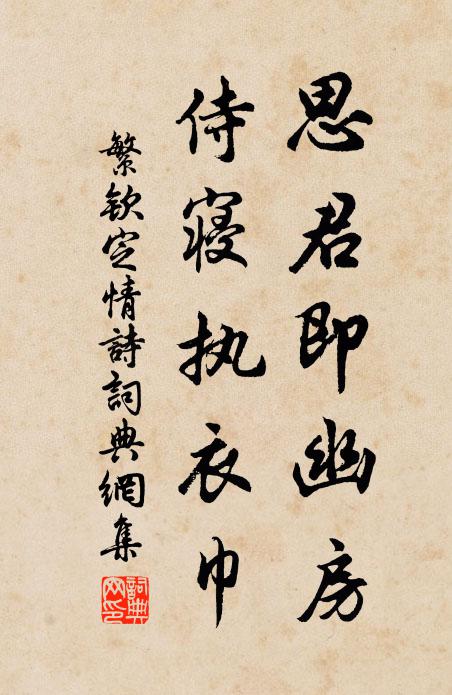 思君即幽房
侍寝执衣巾
繁欽定情詩詞典網集
詞典网印